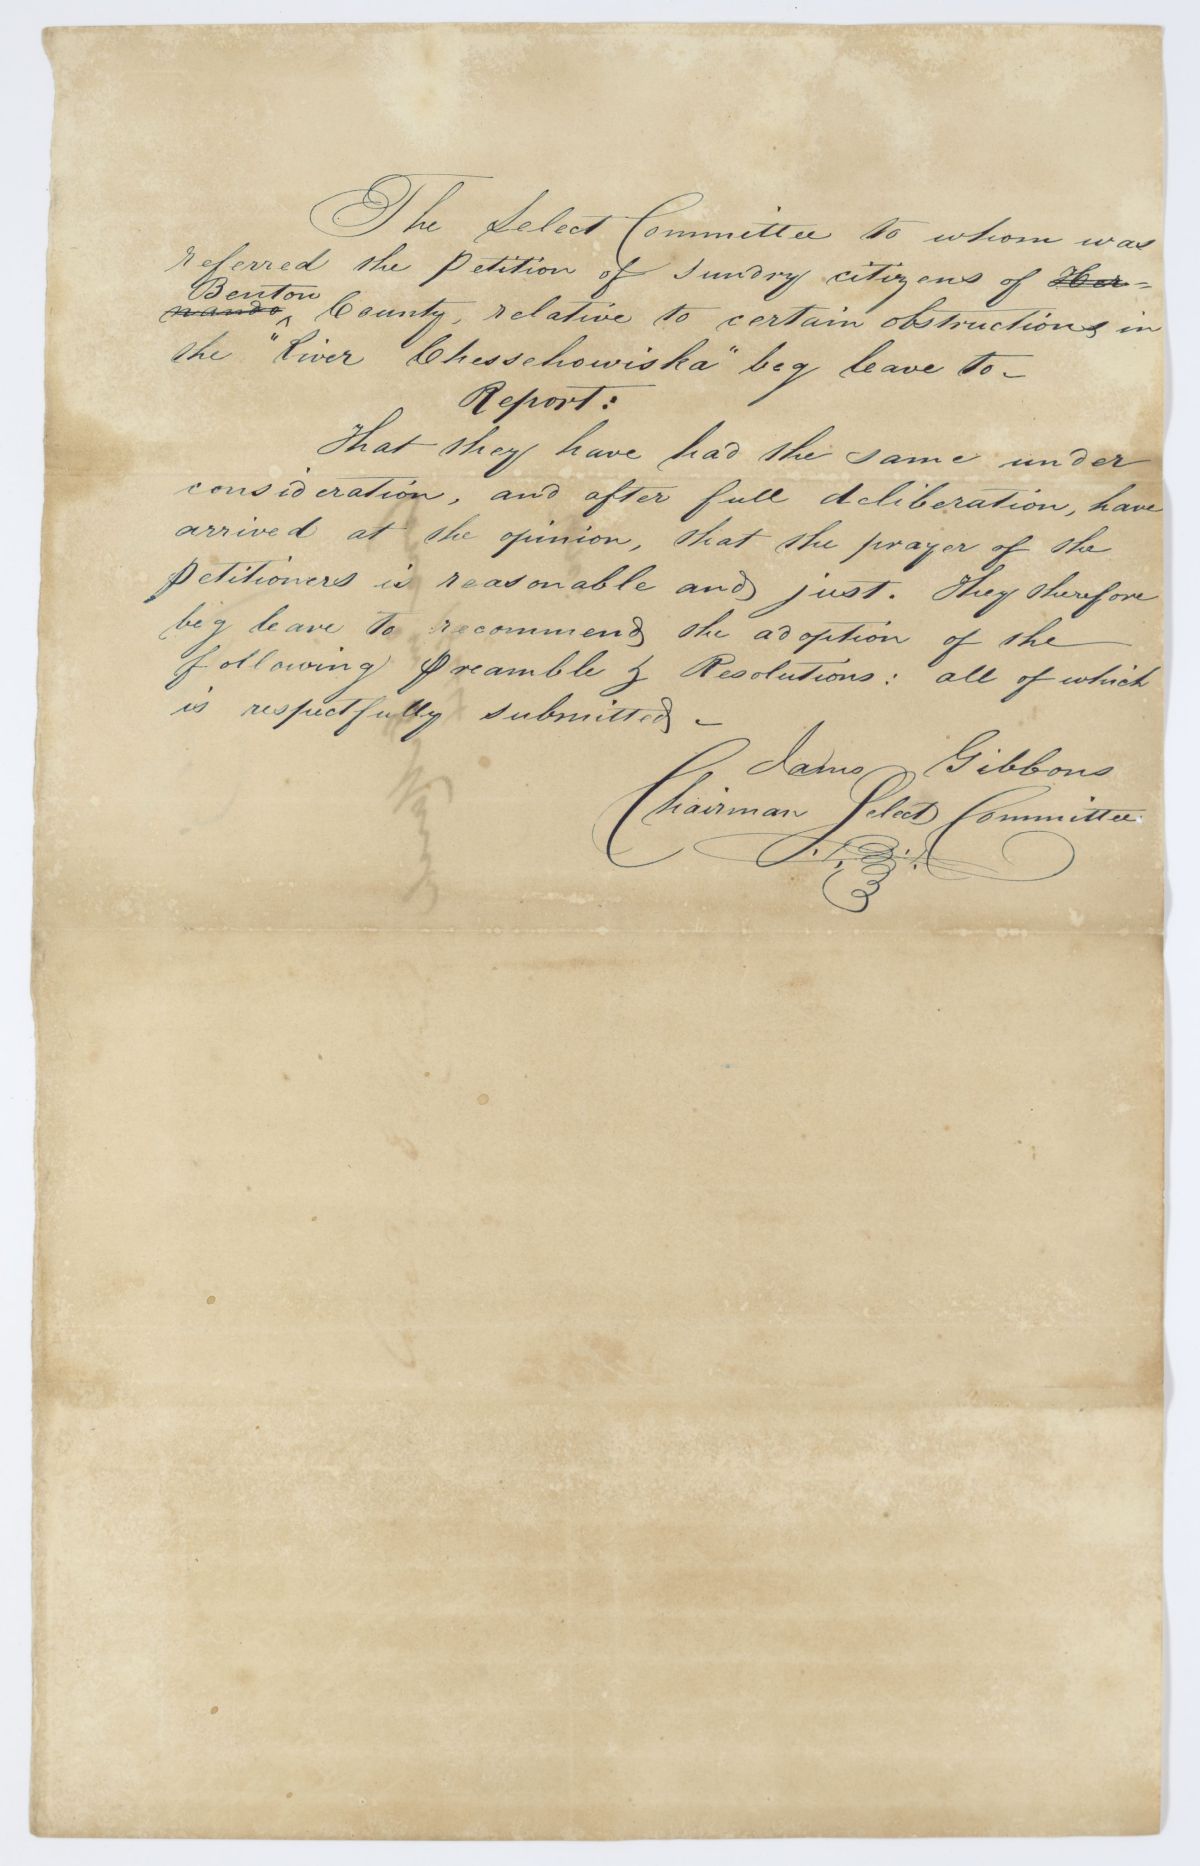 The Select Committee to whom was
referred the Petition of Sundry citizens of Her-
Benton
nando ^ County, relative to certain obstructions in
the "River Chessehowiska" beg leave to-
Report:
That they have had the same under
consideration, and after full deliberation, have
arrived at the opinion, that the prayer of the
Petitioners is reasonable and just. They therefore
beg leave to recommend the adoption of the
following Preamble & Resolutions: all of which
is respectfully submitted-
James Gibbons
Chairman Select Committee